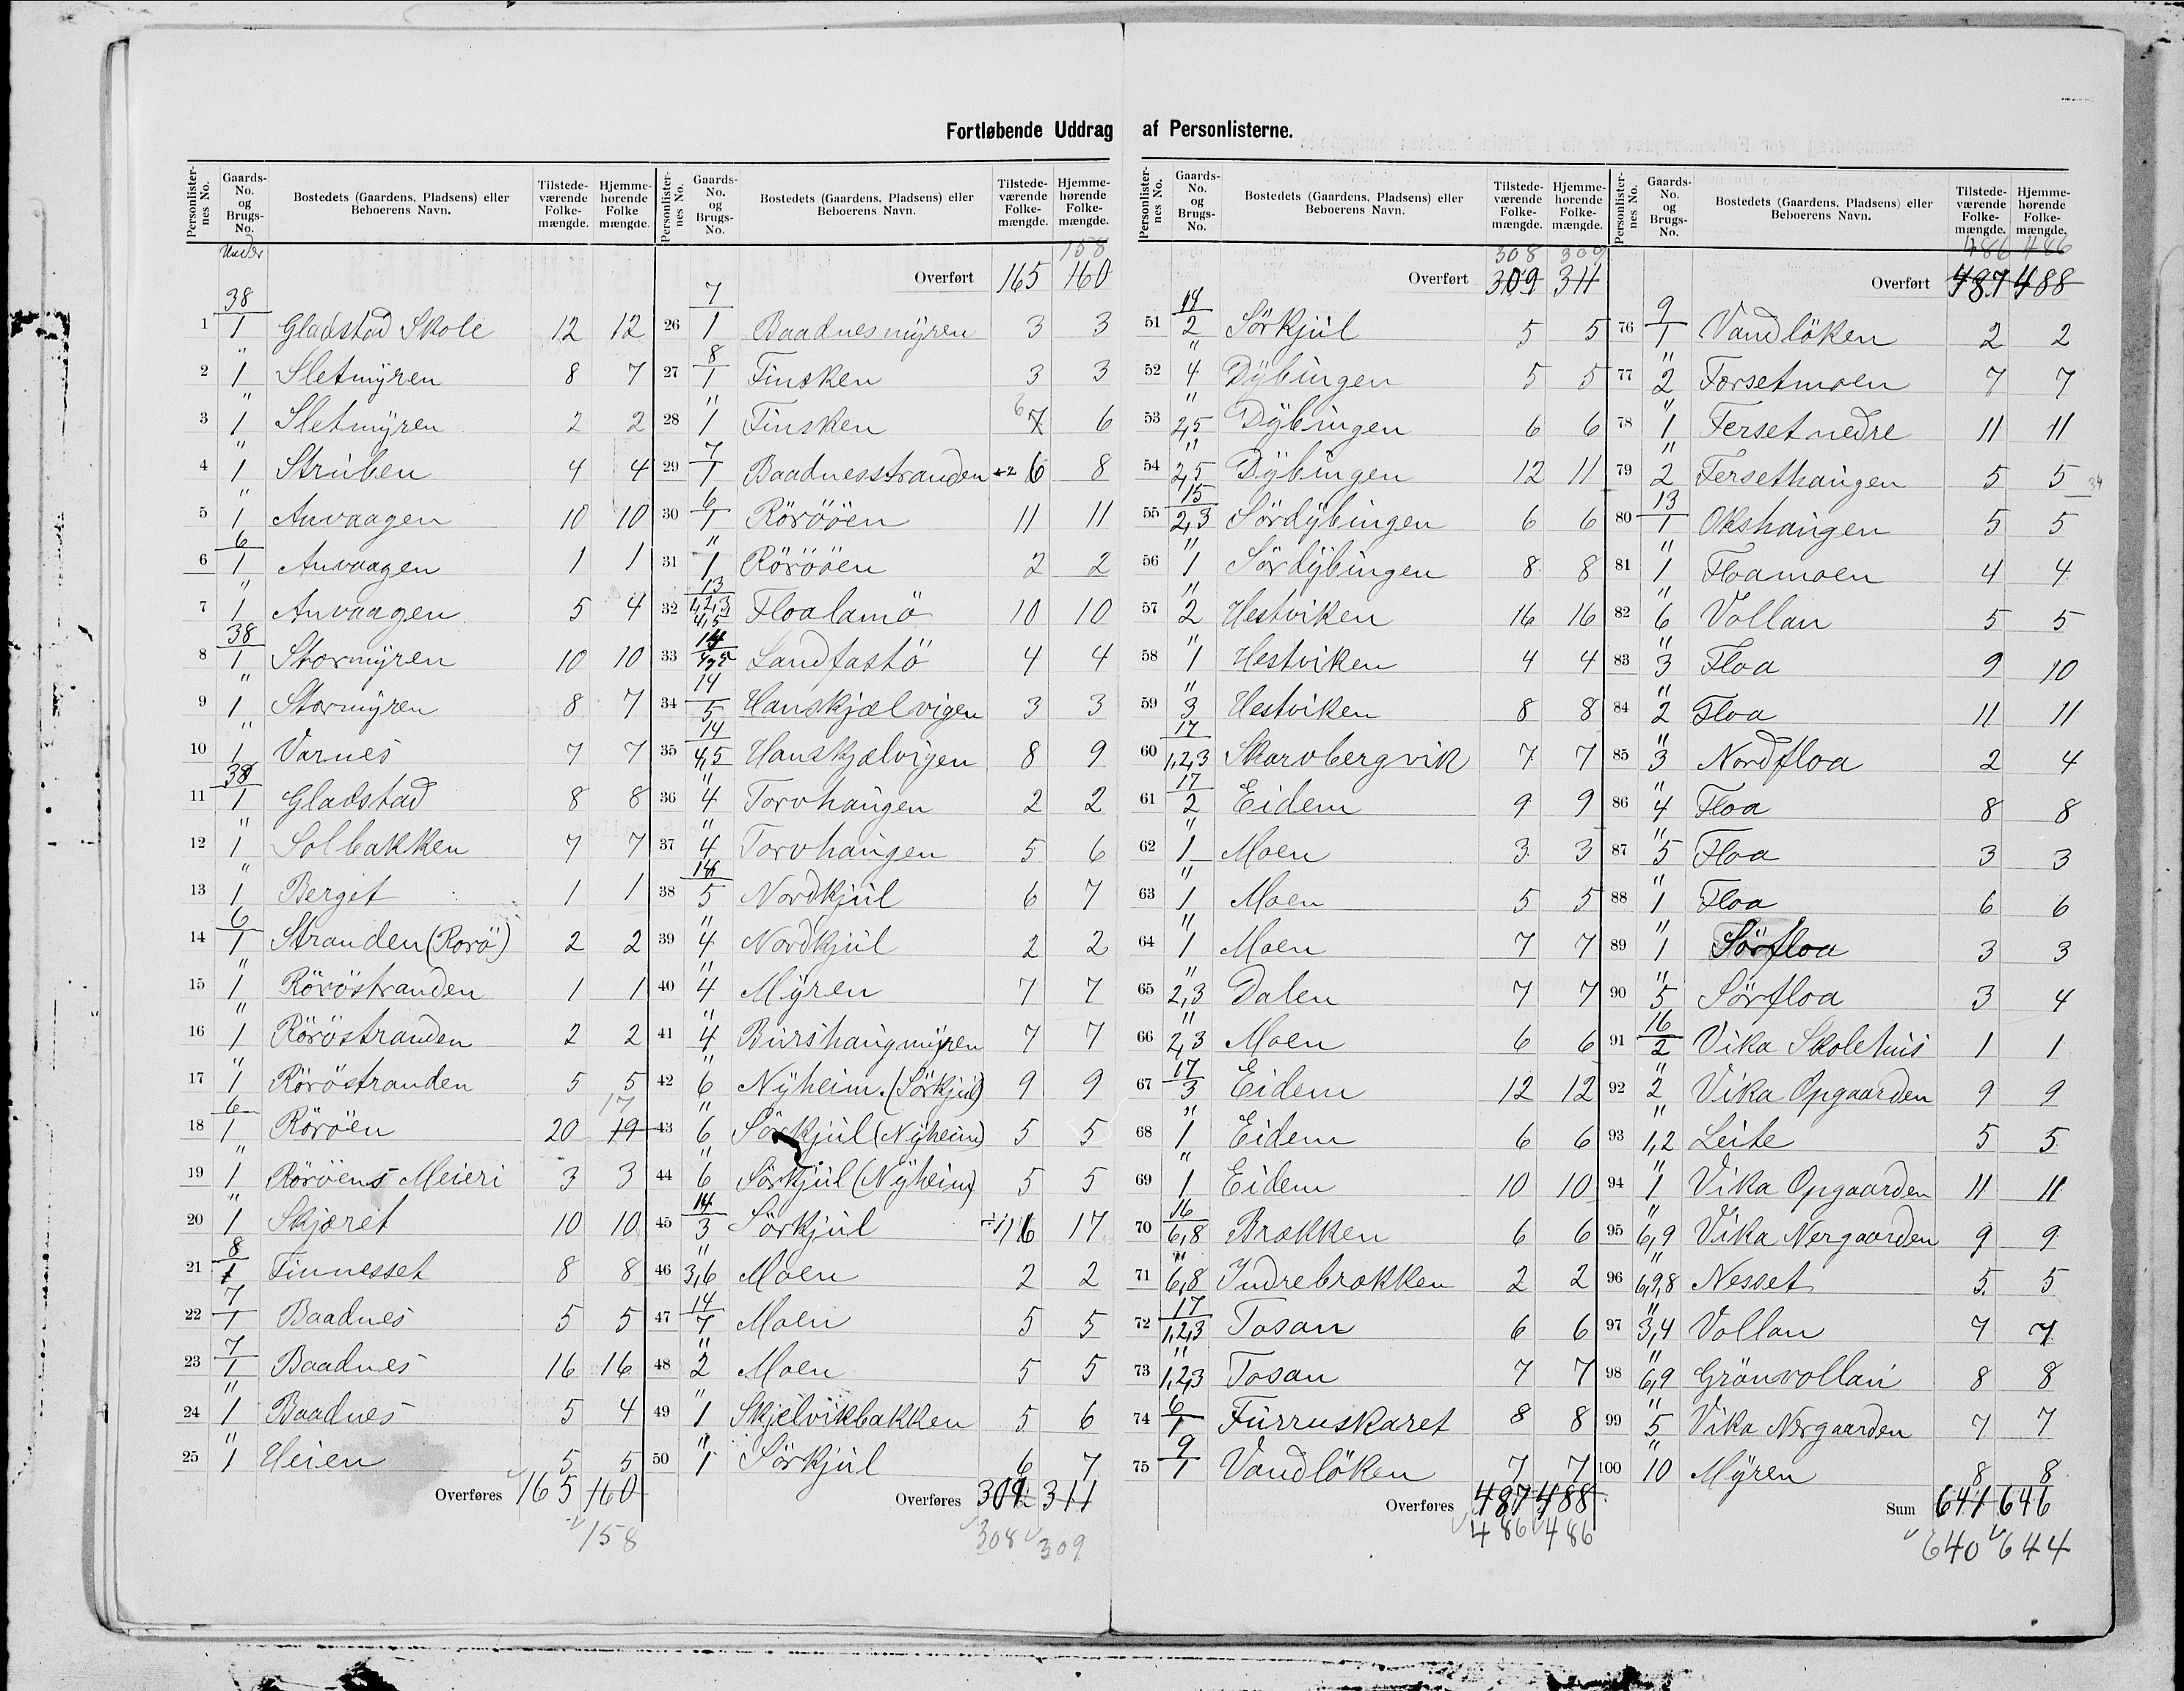 Fortløbende Uddrag af Personlisterne.
Personlisternes No. Gaards-No. og Brugs-No. Bostedets (Gaardens, Pladsens) eller Beboerens Navn. Tilstedeværende Folkemængde. Hjemmehørende Folkemængde.
Under
1 38/1 Gladstad Skole 12 12
2 " 1 Sletmyren 8 7
3 " 1 Sletmyren 2 2
4 " 1 Struben 4 4
5 " 1 Anvaagen 10 10
6 6/1 Anvaagen 1 1
7 " 1 Anvaagen 5 4
8 38/1 Stormyren 10 10
9 " 1 Stormyren 8 7
10 " 1 Varnes 7 7
11 38/1 Gladstad 8 8
12 " 1 Solbakken 7 7
13 " 1 Berget 1 1
14 6/1 Stranden (Rorö) 2 2
15 " 1 Röröstranden 1 1
16 " 1 Röröstranden 2 2
17 " 1 Röröstranden 5 5
18 6/1 Röröen 20 19 17
19 " 1 Röröens Meieri 3 3
20 " 1 Skjæret 10 10
21 8/1 Finnesset 8 8
22 7/1 Baadnes 5 5
23 7/1 Baadnes 16 16
24 " 1 Baadnes 5 4
25 " 1 Heien 5 5
Overføres 165 160
158
Personlisternes No. Gaards-No. og Brugs-No. Bostedets (Gaardens, Pladsens) eller Beboerens Navn. Tilstedeværende Folkemængde. Hjemmehørende Folkemængde.
158
Overført 165 160
26 7/1 Baadnesmyren 3 3
27 8/1 Finsken 3 3
28 " 1 Finsken 6 7 6
29 7/1 Baadnesstranden +2 6 8
30 6/1 Rörööen 11 11
31 " 1 Rörööen 2 2
32 13/1,2,3 4,5 Floalamö 10 10
33 14/4,5 Landfastö 4 4
34 14/5 Hanskjælvigen 3 3
35 14/4,5 Hanskjælvigen 8 9
36 " 4 Torvhaugen 2 2
37 " 4 Torvhaugen 5 6
38 14/5 Nordkjul 6 7
39 " 4 Nordkjul 2 2
40 " 4 Myren 7 7
41 " 4 Burshaugmyren 7 7
42 " 6 Nyheim. (Sörkjul) 9 9
43 " 6 Sörkjul (Nyheim) 5 5
44 " 6 Sörkjul (Nyheim) 5 5
45 14/3 Sörkjul 16 17
46 " 3,6 Moen 2 2
47 14/7 Moen 5 5
48 " 2 Moen 5 5
49 " 1 Skjelvikbakken 5 6
50 " 1 Sörkjul 6 7
Overføres 309 311
308 309
Personlisternes No. Gaards-No. og Brugs-No. Bostedets (Gaardens, Pladsens) eller Beboerens Navn. Tilstedeværende Folkemængde. Hjemmehørende Folkemængde.
308 309
Overført 309 311
51 14/2 Sörkjul 5 5
52 " 4 Dybingen 5 5
53 " 2,5 Dybingen 6 6
54 " 2,5 Dybingen 12 11
55 15/2,3 Sördybingen 6 6
56 " 1 Sördybingen 8 8
57 " 2 Hestviken 16 16
58 " 1 Hestviken 4 4
59 " 3 Hestviken 8 8
60 17/1,2,3 Skarvbergvik 7 7
61 17/2 Eidem 9 9
62 " 1 Moen 3 3
63 " 1 Moen 5 5
64 " 1 Moen 7 7
65 " 2,3 Dalen 7 7
66 " 2,3 Moen 6 6
67 17/3 Eidem 12 12
68 " 1 Eidem 6 6
69 " 1 Eidem 10 10
70 16/6,8 Brækken 6 6
71 " 6,8 Indrebrækken 2 2
72 17/1,2,3 Tosan 6 6
73 " 1,2,3 Tosan 7 7
74 6/1 Furruskaret 8 8
75 9/1 Vandlöken 7 7
Overføres 487 488
486 486
Personlisternes No. Gaards-No. og Brugs-No. Bostedets (Gaardens, Pladsens) eller Beboerens Navn. Tilstedeværende Folkemængde. Hjemmehørende Folkemængde.
486 486
Overført 487 488
76 9/1 Vandlöken 2 2
77 " 2 Forsetmoen 7 7
78 " 1 Ferset nedre 11 11
79 " 2 Fersethaugen 5 5 34
80 13/1 Okshaugen 5 5
81 " 1 Floamoen 4 4
82 " 6 Vollan 5 5
83 " 3 Floa 9 10
84 " 2 Floa 11 11
85 " 3 Nordfloa 2 4
86 " 4 Floa 8 8
87 " 5 Floa 3 3
88 " 1 Floa 6 6
89 " 1 Sörfloa 3 3
90 " 5 Sörfloa 3 4
91 16/2 Vika Skolehus 1 1
92 " 2 Vika Opgaarden 9 9
93 " 1,2 Leite 5 5
94 " 1 Vika Opgaarden 11 11
95 " 6,9 Vika Nergaarden 9 9
96 " 6,9,8 Nesset 5 5
97 " 3,4 Vollan 7 7
98 " 6,9 Grönvollan 8 8
99 " 5 Vika Nergaarden 7 7
100 " 10 Myren 8 8
Sum 641 646
640 644